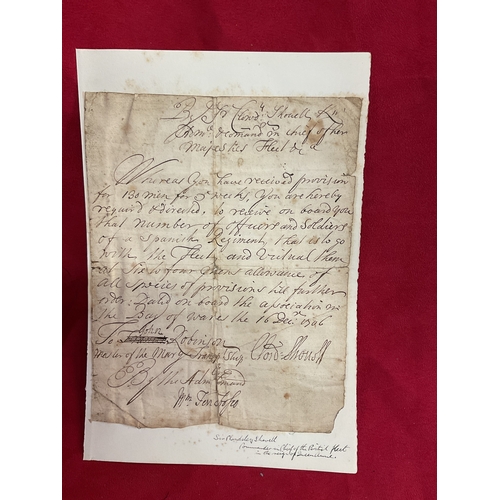 By Sr Clowdy Shovell Knt
Adm & Comandr in cheif of her
Majesties Fleet &c a
Whereas You have received provisions
for 130 men for weeks, You are hereby
requird & directed, to receive on board you
that number of officers and Soldiers
of a Spanish Regiment, that is to go
with the Fleet and victual them
at Six to four mens allowance of
all Species of provisions till further
order. Dated on board the Association in
the Bay of wares the 16 Decr 1706
John
To Robinson
Master of the Mary Transptship Clowd Shovell
By the Adm Comand
Sir Cloudesley Shovell
Commander in Chief of the British fleet
in the reign of Queen Anne.